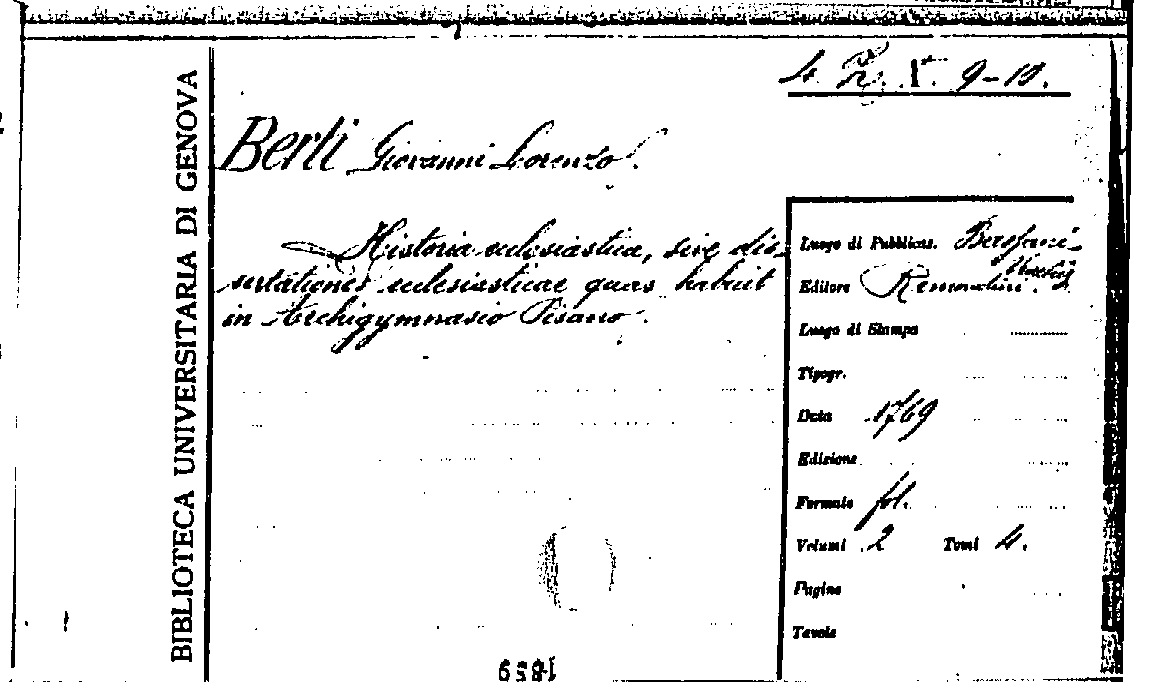 4. X. 9-10.
BIBLIOTECA UNIVERSITARIA DI GENOVA
Berti Giovanni Lorenzo.
Historia ecclesiastica, sive dis-
sertationes ecclesiasticae quas habuit
in Archigymnasio Pisano.
Luogo di Pubblicaz.
Editore Remondini.
Luogo di Stampa
Tipogr.
Data 1769
Edizione
Formato fol.
Volumi 2 Tomi 4.
Pagine
Tavole